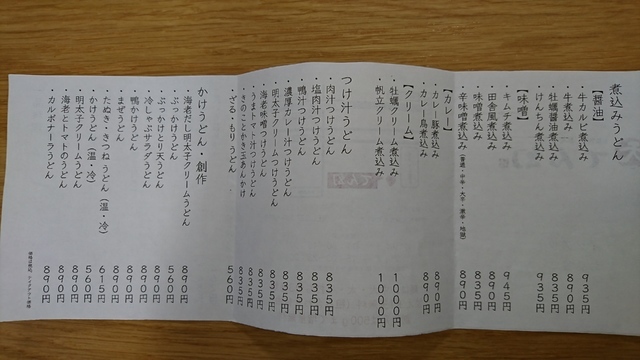 煮込みうどん
【醤油】
・牛カルビ煮込み 935円
・牛煮込み 890円
・牡蠣醤油煮込み 835円
・けんちん煮込み 935円
【味噌】
・キムチ煮込み 945円
・田舎風煮込み 890円
・味噌煮込み 835円
・辛味噌煮込み(普通・中辛・大辛・激辛・地獄) 890円
【カレー】
・カレー豚煮込み 890円
・カレー鳥煮込み 890円
【クリーム】
・牡蠣クリーム煮込み 1000円
・帆立クリーム煮込み 1000円
つけ汁うどん
・肉汁つけうどん 835円
・塩肉汁つけうどん 835円
・鴨汁つけうどん 835円
・濃厚カレー汁つけうどん 835円
・明太子クリームつけうどん 835円
・海老味噌つけうどん 835円
・うまトマト汁つけうどん 835円
・きのことかき玉あんかけ 835円
・ざる・もりうどん 560円
かけうどん・創作
・海老だし明太子クリームうどん 890円
・ぶっかけうどん 560円
・ぶっかけとり天うどん 890円
・冷しゃぶサラダうどん 890円
・鴨かけうどん 890円
・まぜうどん 890円
・たぬき・きつねうどん(温・冷) 615円
・かけうどん(温・冷) 560円
・明太子クリームうどん 890円
・海老とトマトのうどん 890円
・カルボナーラうどん 890円